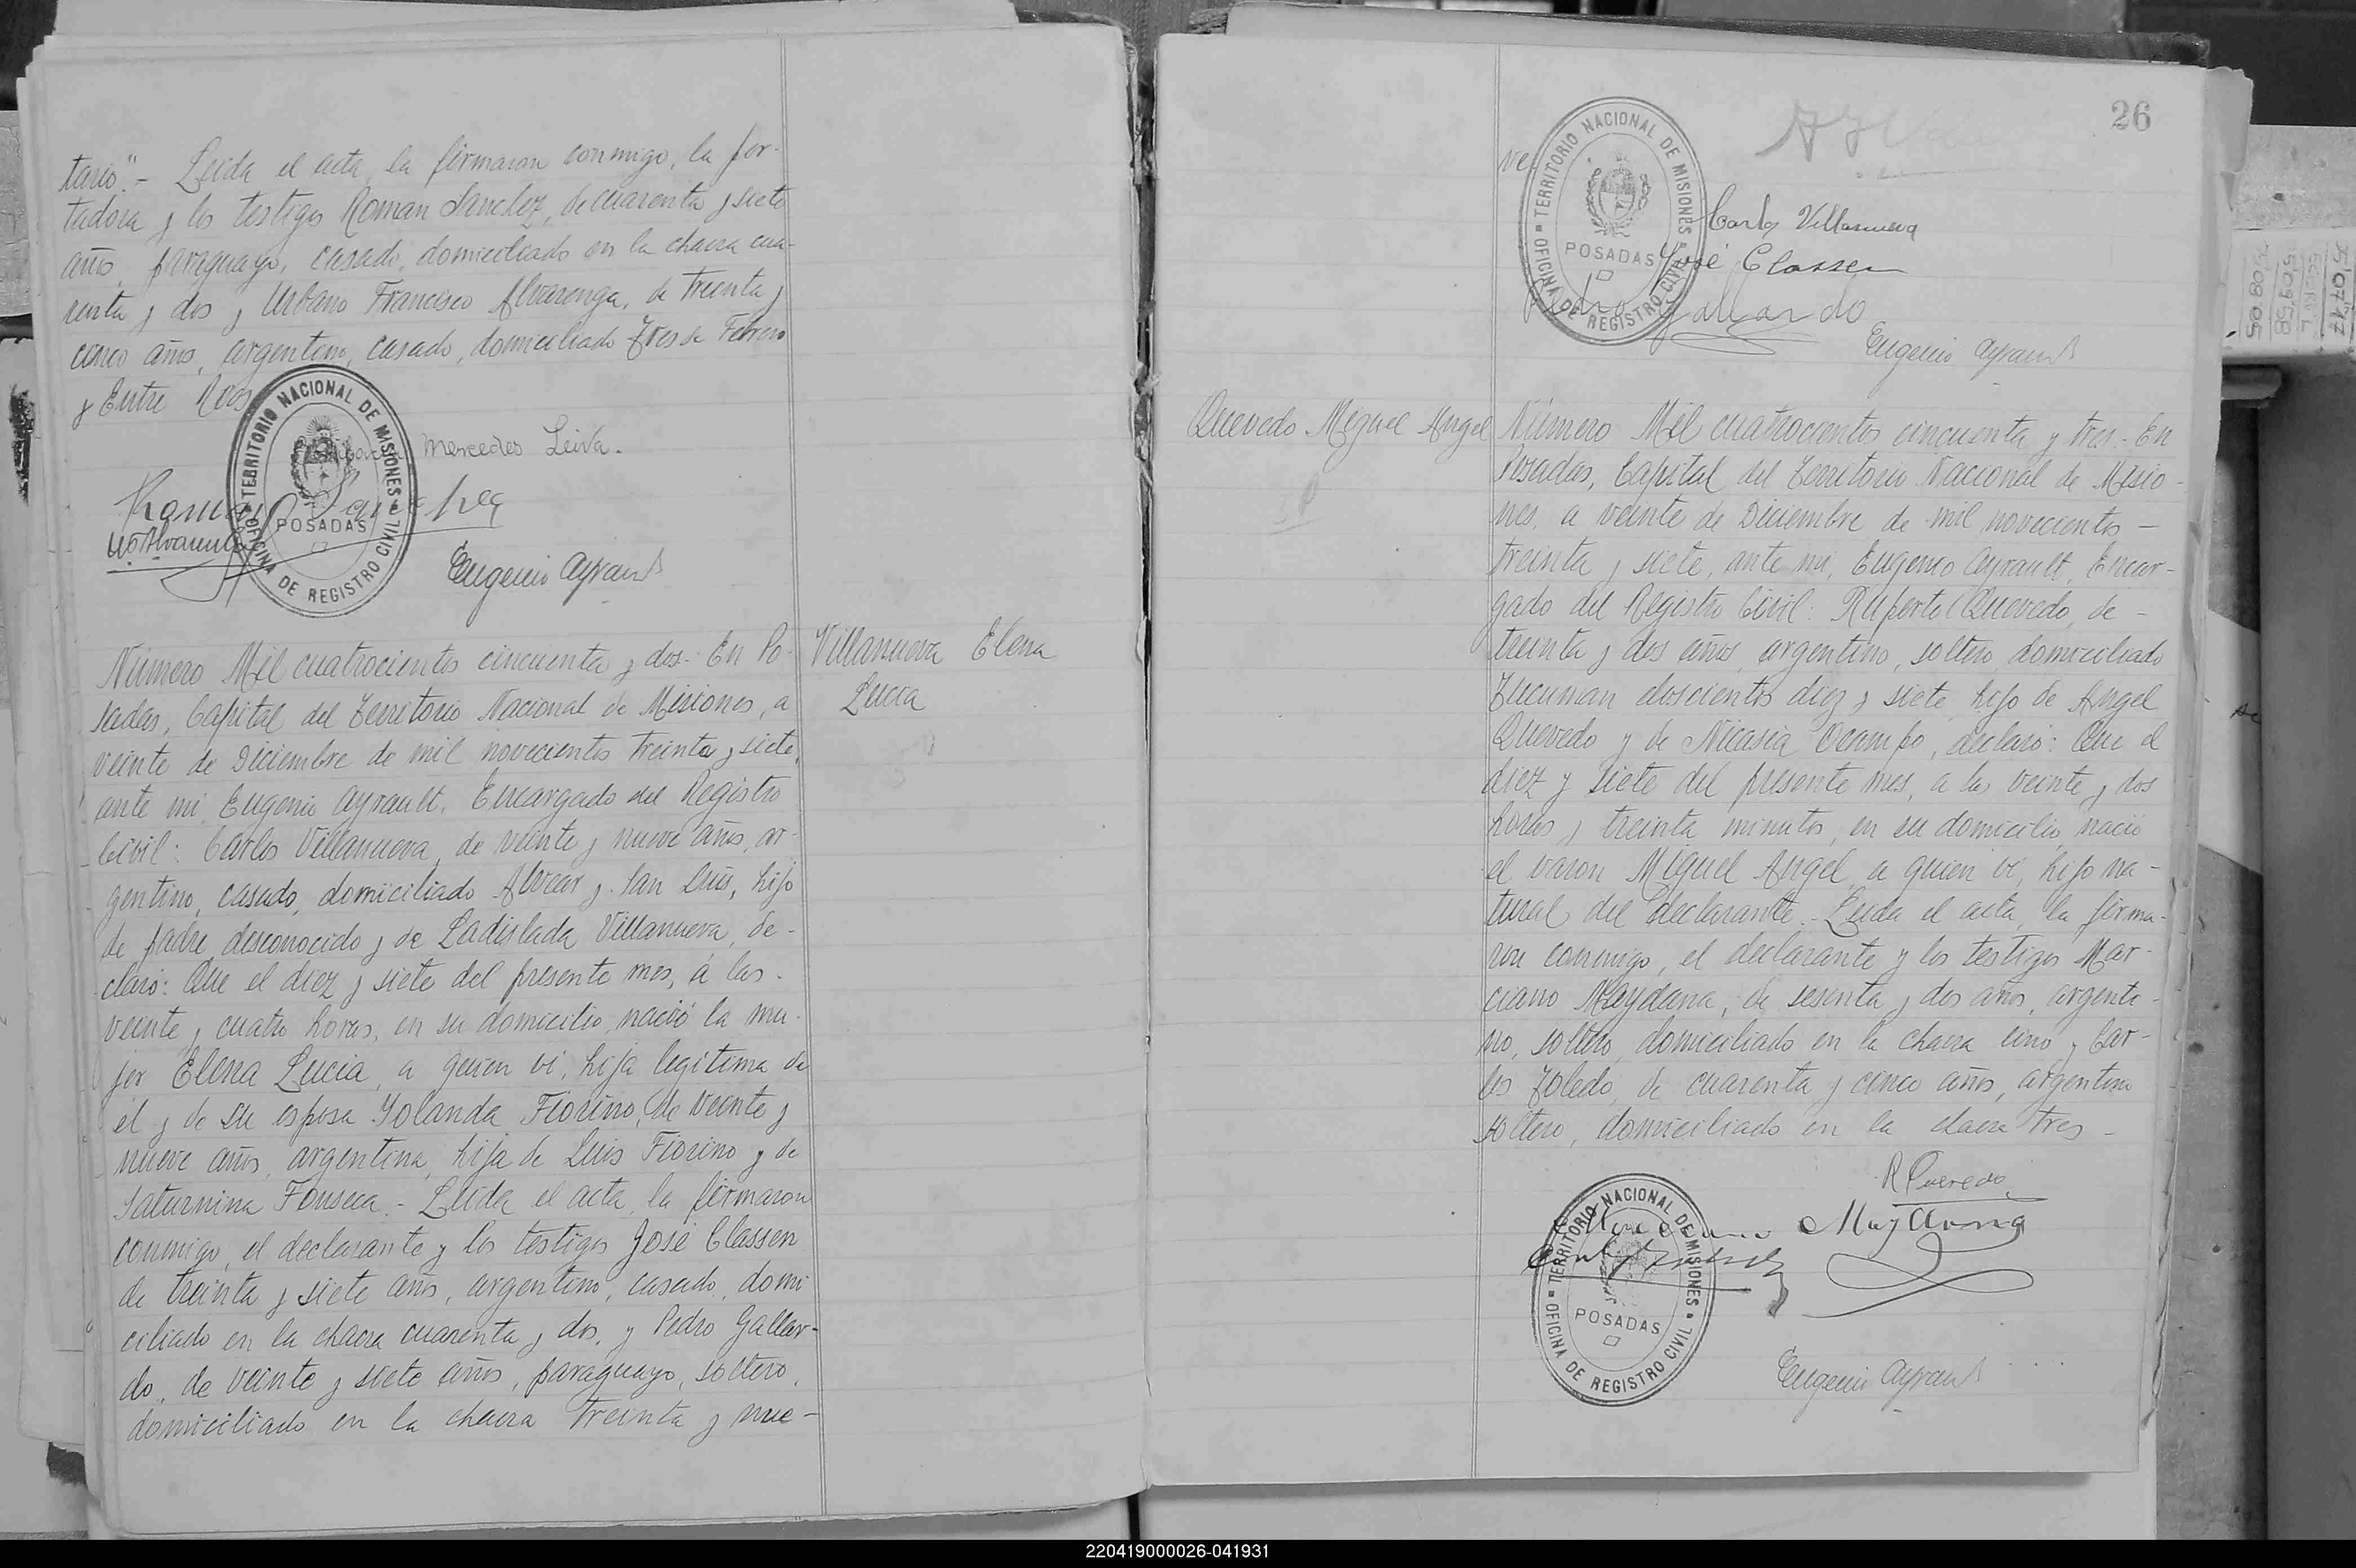 tario". - Leida el acta, la firmaron conmigo, la por-
tadora y los testigos Roman Sanchez, de cuarenta y siete
años, paraguayo, casado, domiciliado en la chacra cua-
renta y dos y Urbano Francisco Alvarenga, de treinta y
cinco años, argentino, casado, domiciliado Tres de Febrero
y Entre Rios
TERRITORIO NACIONAL DE MISIONES
POSADAS
OFICINA DE REGISTRO CIVIL
Mercedes Leiva.
Roman Sanchez
Eugenio Ayrault
Número Mil cuatrocientos cincuenta y dos.- En Po-
sadas, Capital del Territorio Nacional de Misiones, a
veinte de Diciembre de mil novecientos treinta y siete,
ante mi, Eugenio Ayrault, Encargado del Registro
Civil: Carlos Villanueva, de veinte y nueve años, ar-
gentino, casado, domiciliado Alvear y San Luis, hijo
de padre desconocido y de Ladislada Villanueva, de-
claró: Que el diez y siete del presente mes, á las -
veinte y cuatro horas, en su domicilio, nació la mu-
jer Elena Lucia, a quien vi, hija legitima de
el y de su esposa Yolanda Fiorino, de veinte y
nueve años, argentina, hija de Luis Fiorino y de
Saturnina Fonseca. - Leida el acta, la firmaron
conmigo, el declarante y los testigos José Classen
de treinta y siete años, argentino, casado, domi
ciliado en la chacra cuarenta y dos, y Pedro Gallar-
do, de veinte y siete años, paraguayo, soltero,
domiciliado en la chacra treinta y nue-
Villanueva Elena
Lucia
26
ve
TERRITORIO NACIONAL DE MISIONES
POSADAS
OFICINA DE REGISTRO CIVIL
Carlos Villanueva
José Classen
Pedro Gallardo
Eugenio Ayrault
Quevedo Miguel Angel
Número Mil cuatrocientos cincuenta y tres.- En
Posadas, Capital del Territorio Nacional de Misio-
nes, a veinte de Diciembre de mil novecientos -
treinta y siete, ante mi, Eugenio Ayrault, Encar-
gado del Registro Civil: Ruperto Quevedo, de -
treinta y dos años, argentino, soltero, domiciliado
Tucuman doscientos diez y siete, hijo de Angel
Quevedo y de Nicasia Ocampo, declaró: Que el
diez y siete del presente mes, a las veinte y dos
horas y treinta minutos, en su domicilio, nació
el varon Miguel Angel, a quien vi, hijo na-
tural del declarante. - Leida el acta, la firma-
ron conmigo, el declarante y los testigos Mar-
ciano Maydana, de sesenta y dos años, argenti-
no, soltero, domiciliado en la chacra uno y Car-
los Toledo, de cuarenta y cinco años, argentino
soltero, domiciliado en la chacra tres -
R Quevedo
Marciano Maydana
TERRITORIO NACIONAL DE MISIONES
POSADAS
OFICINA DE REGISTRO CIVIL
Eugenio Ayrault
220419000026-041931